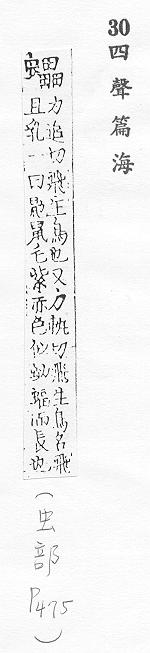 30四聲篇海
力追切飛生鳥也又力軌切飛生鳥名飛
且乳一曰鼯鼠毛紫赤色似蝙蝠而長也
(虫部P475)